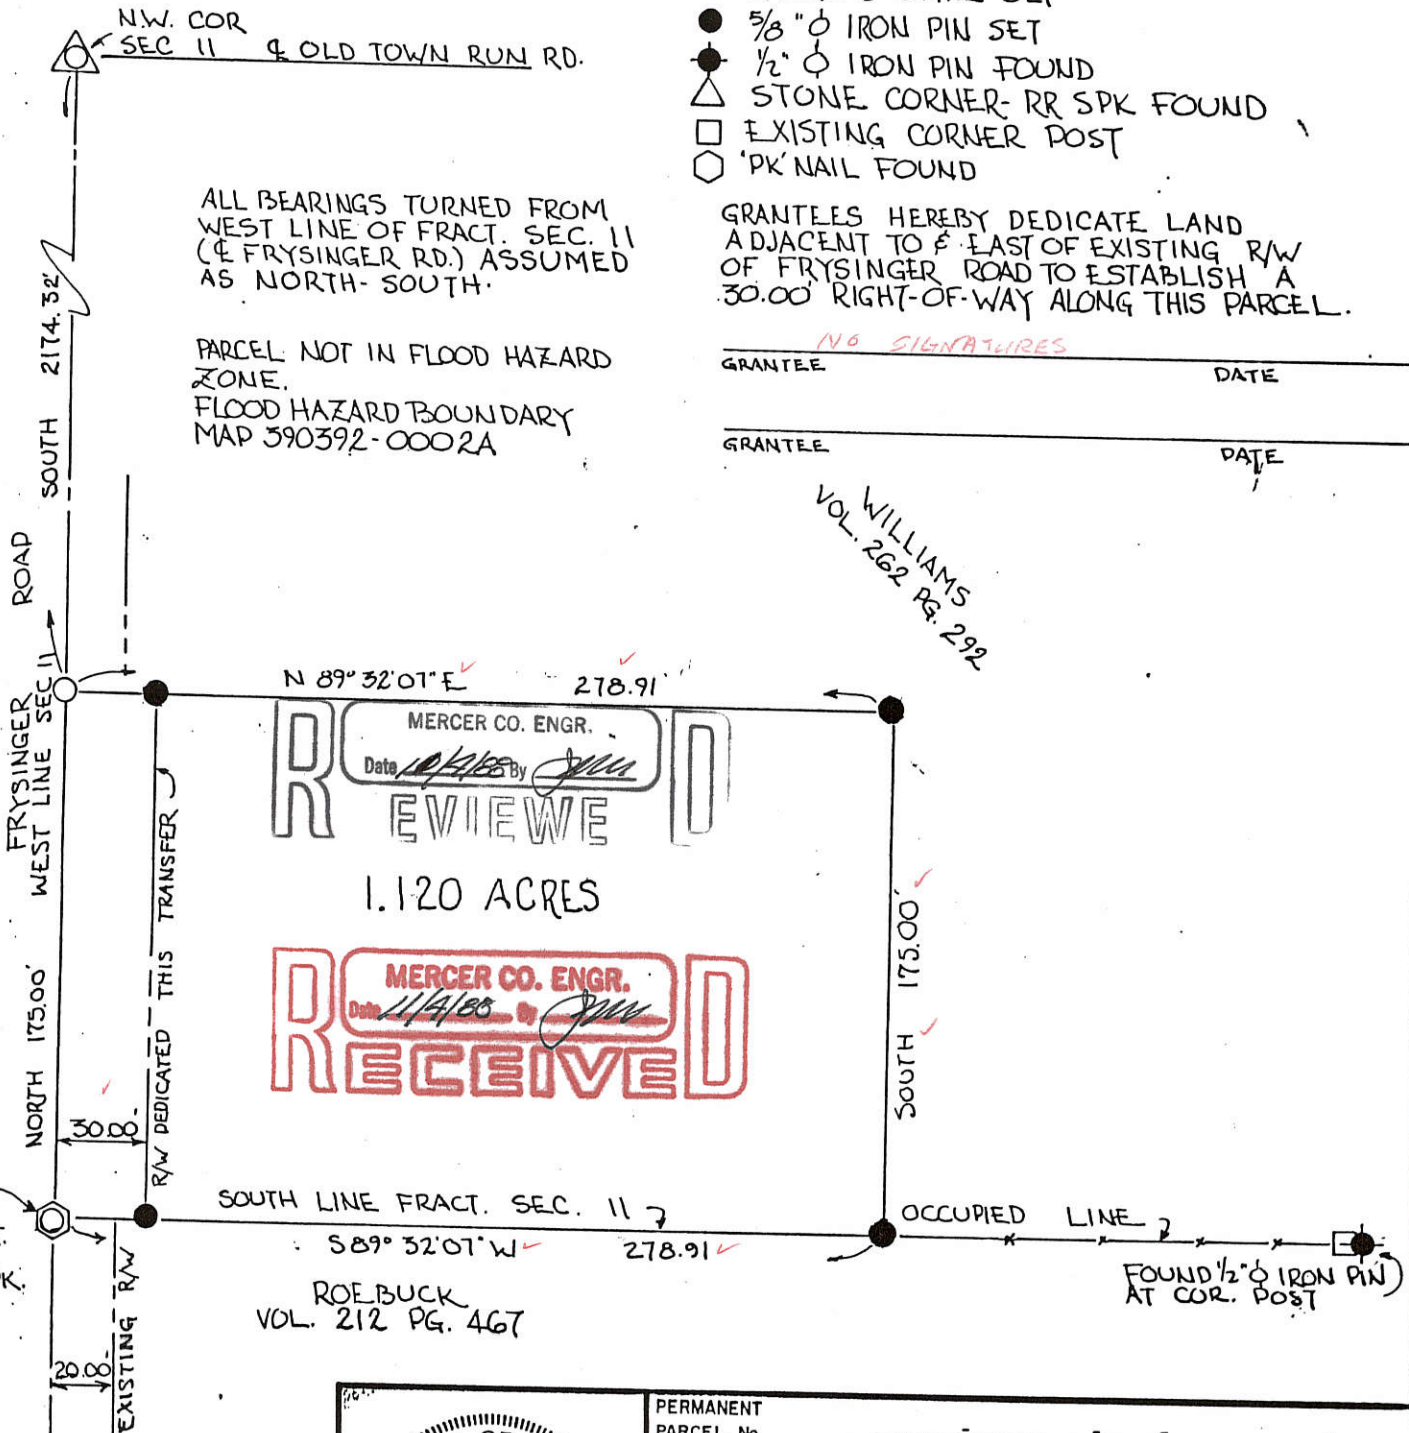 N.W. COR
SEC 11 ℄ OLD TOWN RUN RD.
5/8"⌀ IRON PIN SET
1/2"⌀ IRON PIN FOUND
STONE CORNER-RR SPK FOUND
EXISTING CORNER POST
'PK' NAIL FOUND
ALL BEARINGS TURNED FROM
WEST LINE OF FRACT. SEC. 11
(℄ FRYSINGER RD.) ASSUMED
AS NORTH-SOUTH.
PARCEL NOT IN FLOOD HAZARD
ZONE.
FLOOD HAZARD BOUNDARY
MAP 390392-0002A
GRANTEES HEREBY DEDICATE LAND
ADJACENT TO & EAST OF EXISTING R/W
OF FRYSINGER ROAD TO ESTABLISH A
30.00' RIGHT-OF-WAY ALONG THIS PARCEL.
NO SIGNATURES
GRANTEE DATE
GRANTEE DATE
WILLIAMS
VOL. 262 PG. 292
SOUTH 2174.32'
FRYSINGER ROAD
WEST LINE SEC 11
NORTH 175.00'
N 89° 32'07" E 278.91'
MERCER CO. ENGR.
Date By
REVIEWED
R/W DEDICATED THIS TRANSFER
1.120 ACRES
MERCER CO. ENGR.
Date 11/4/88 By
RECEIVED
SOUTH 175.00'
30.00
SOUTH LINE FRACT. SEC. 11
S89° 32'07" W 278.91
OCCUPIED LINE
FOUND 1/2"⌀ IRON PIN
AT COR. POST
ROEBUCK
VOL. 212 PG. 467
20.00
EXISTING R/W
PERMANENT
PARCEL No.